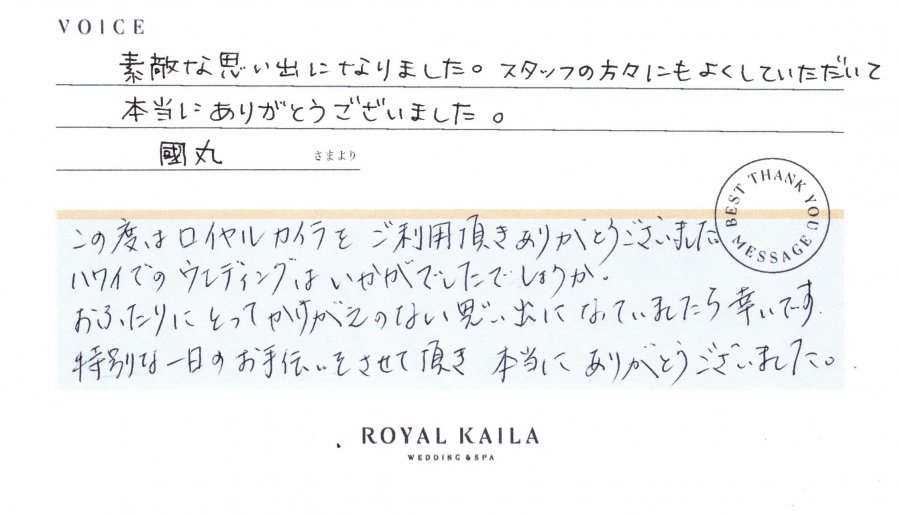 VOICE
素敵な思い出になりました。スタッフの方々にもよくしていただいて
本当にありがとうございました。
國丸 さまより
BEST THANK YOU MESSAGE
この度はロイヤルカイラをご利用頂きありがとうございました
ハワイでのウエディングはいかがでしたでしょうか。
おふたりにとってかけがえのない思い出になっていましたら幸いです.
特別な一日のお手伝いをさせて頂き 本当にありがとうございました。
ROYAL KAILA
WEDDING & SPA